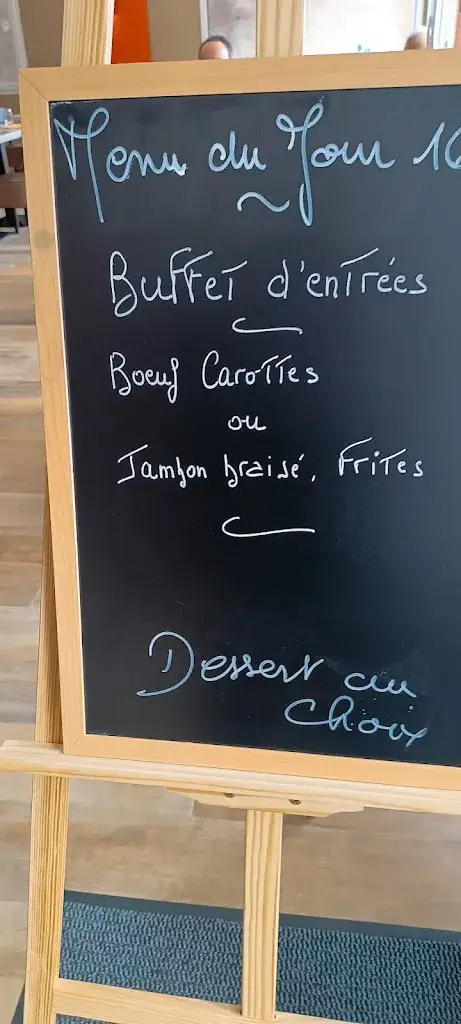 Menu du Jour 16
Buffet d'entrées
Boeuf Carottes
ou
Jambon braisé, Frites
Dessert au
Choix